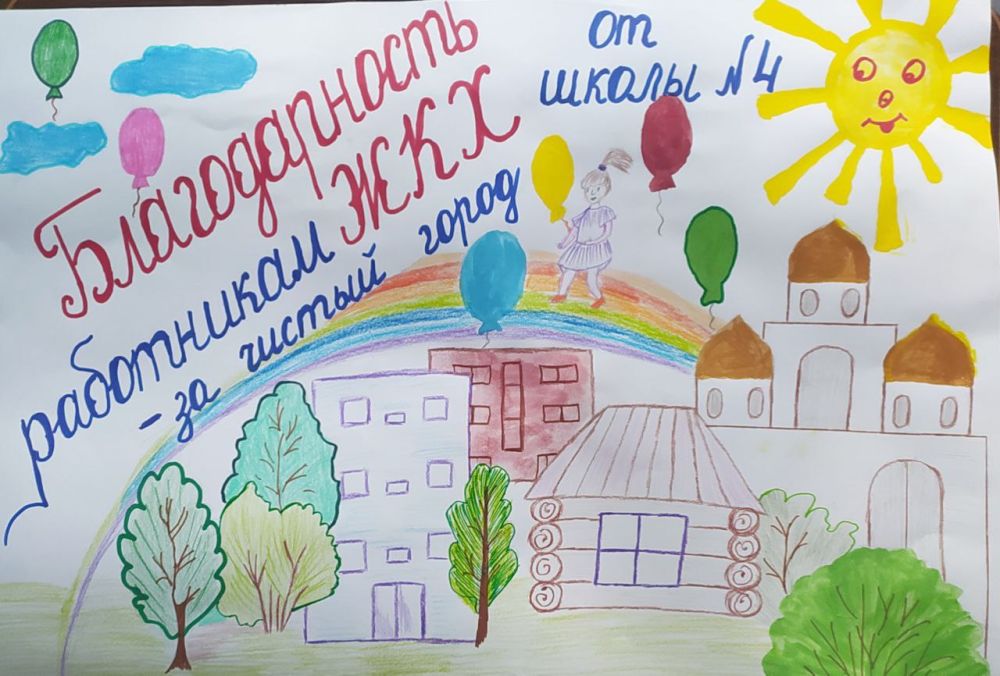 Благодарность
работникам ЖКХ
- за чистый город
от
школы №4